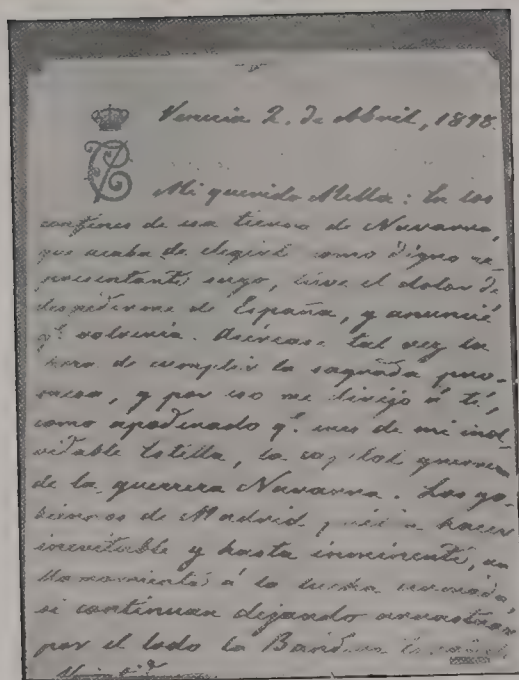 Venecia 2. de Abril, 1898.
Mi querido Mella: En los
confines de esa tierra de Navarra,
que acaba de elegirte como digno re-
presentante suyo, tuve el dolor de
despedirme de España, y anuncié
qe. volvería. Acércase tal vez la
hora de cumplir la sagrada pro-
mesa, y por eso me dirijo á tí,
como apoderado qe. eres de mi inol-
vidable Estella, la capital guerrera
de la guerrera Navarra. Los go-
biernos de Madrid á hacer
inevitable y hasta inminente, un
llamamiento á la lucha armada,
si continuan dejando arrastrar
por el lodo la Bandera Española.